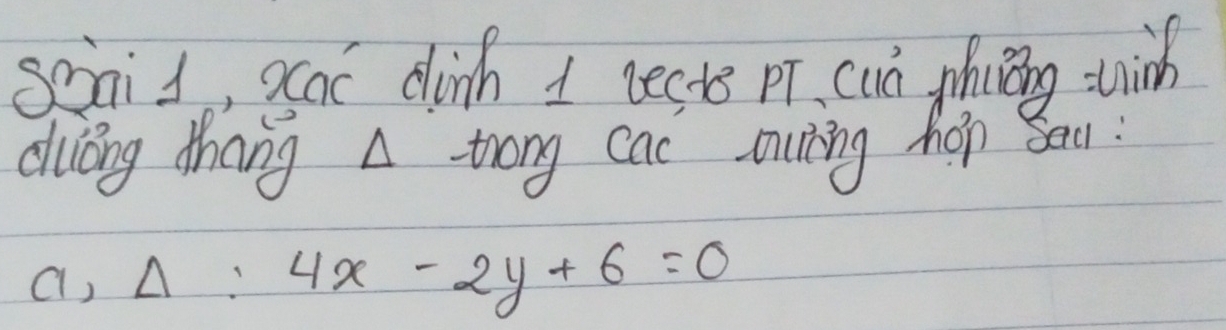 Bài 1, xác định 1 vectơ PT của phương trình
đường thẳng Δ trong các trường hợp sau:
a, Δ : 4x - 2y + 6 = 0